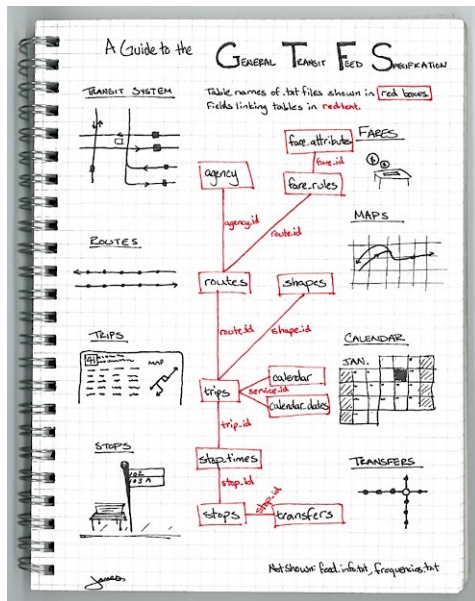 A Guide to the GENERAL TRANSIT FEED SPECIFICATION
Table names of .txt files shown in red boxes.
Fields linking tables in red text.
TRANSIT SYSTEM
fare_attributes
FARES
fare_id
agency
fare_rules
agency_id
route_id
MAPS
ROUTES
routes
shapes
route_id
shape_id
TRIPS
41
MAP
CALENDAR
JAN.
calendar
service_id
trips
calendar_dates
trip_id
STOPS
102
103A
stop_times
stop_id
TRANSFERS
stop_id
stops
transfers
Not shown: feed_info.txt, frequencies.txt
James